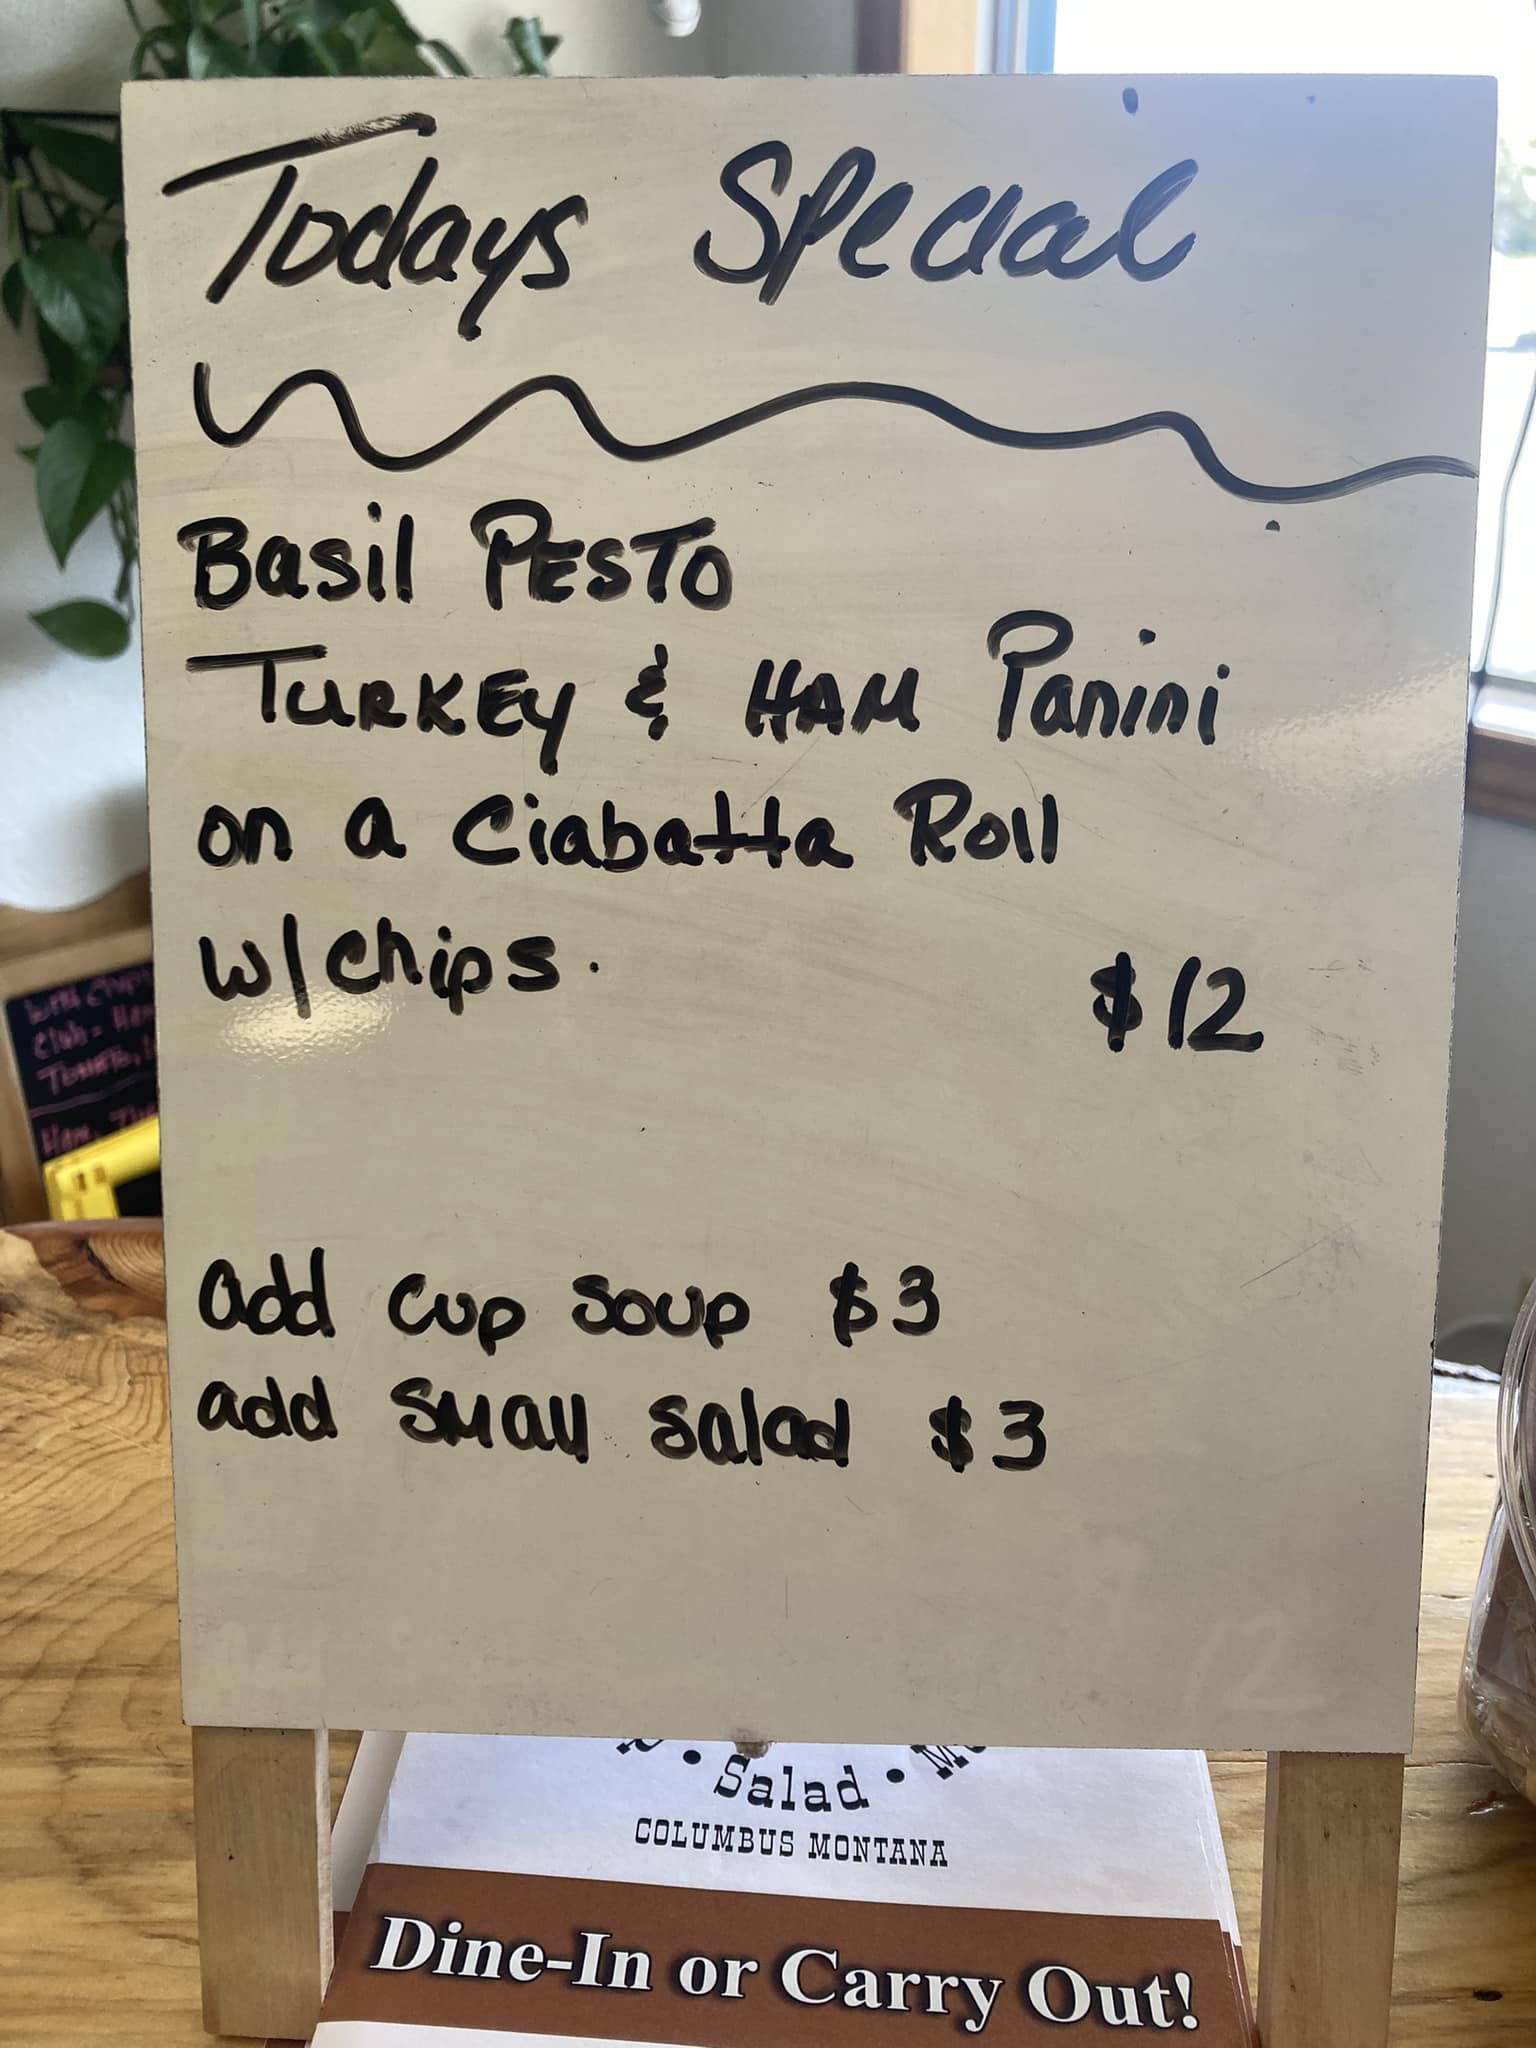 Todays Special
Basil PESTO
TURKEY & HAM Panini
on a Ciabatta Roll
w/chips.
$12
add cup soup $3
add small salad $3
Club - Ham
Ham,
• Salad •
COLUMBUS MONTANA
Dine-In or Carry Out!